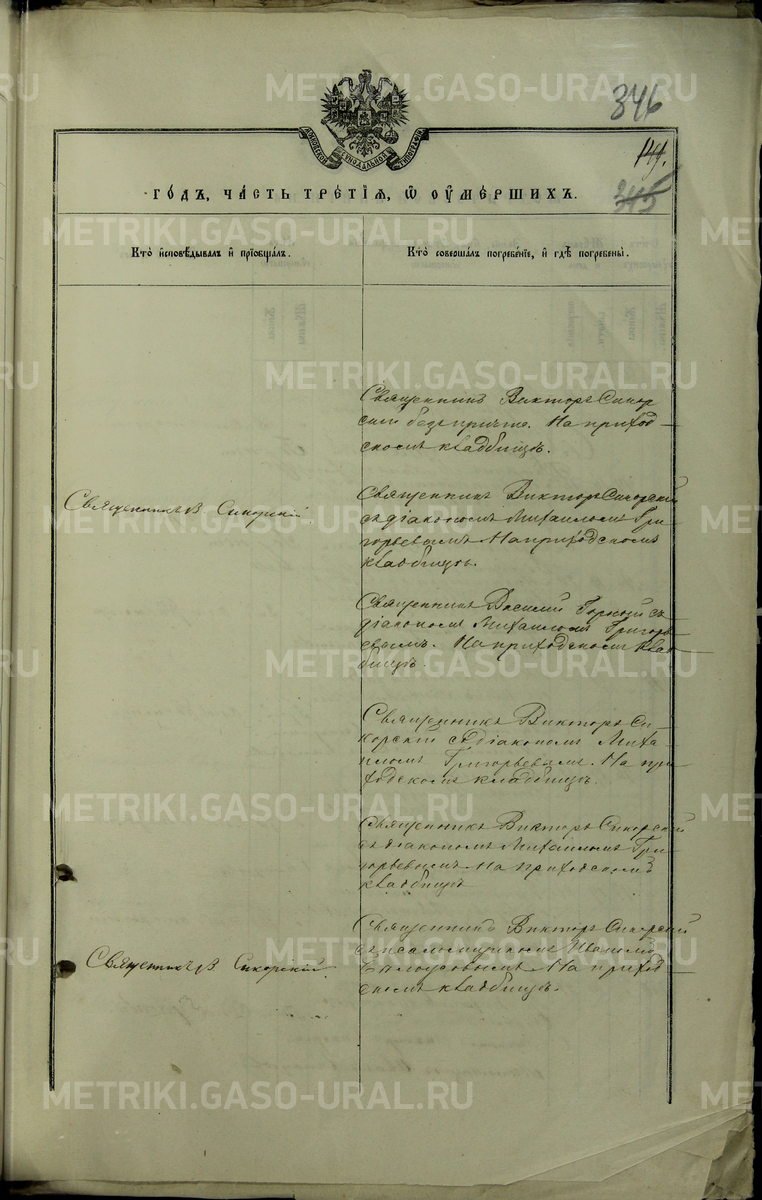 METRIKI.GASO-URAL.RU
346
149.
345
МОСКОВСКОЙ СѴНОДАЛЬНОЙ ТИПОГРАФІИ
ГО́ДЪ, ЧА́СТЬ ТРЕ́ТІѦ, Ѡ҆ ОУ҆МЕ́РШИХЪ.
Кто̀ и҆сповѣ́дывалъ и҆ прїѻбща́лъ.
Кто̀ соверша́лъ погребе́нїе, и҆ гдѣ̀ погребены̀.
Священникъ Викторъ Сикор
скій безъ причта. На приход-
скомъ кладбищѣ.
Священникъ В Сикорскій
Священникъ Викторъ Сикорскій
съ діакономъ Михаиломъ Гри-
горьевымъ На приходскомъ
кладбищѣ.
Священникъ Василій Горный съ
діакономъ Михаиломъ Григорь
евымъ. На приходскомъ клад-
бищѣ.
Священникъ Викторъ Си-
корскій съ діакономъ Миха-
иломъ Григорьевымъ. На при-
ходскомъ кладбищѣ.
Священникъ Викторъ Сикорскій
съ діакономъ Михаиломъ Гри
горьевымъ На приходскомъ
кладбищѣ
Священникъ В Сикорскій
Священникъ Викторъ Сикорскій
съ псаломщикомъ Иваномъ
Бѣлоусовымъ На приход-
скомъ кладбищѣ.
METRIKI.GASO-URAL.RU